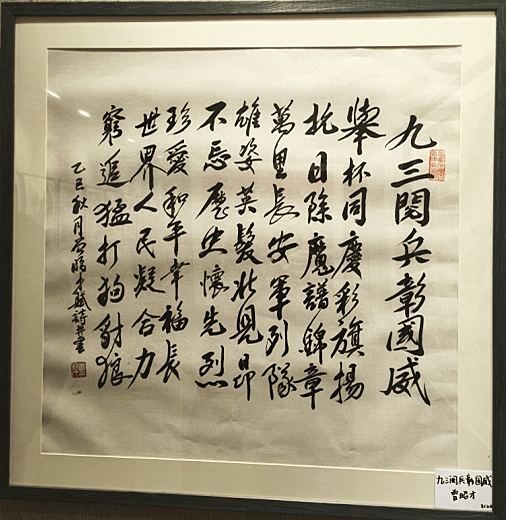 九三閱兵彰國威
舉杯同慶彩旗揚
抗日除魔譜錦章
萬里長安軍列隊
雄姿英發壯見昂
不忘歷史懷先烈
珍愛和平幸福長
世界人民凝合力
窮追猛打狗豺狼
乙巳秋月曹昭才賦詩并書
九三阅兵彰国威
曹昭才